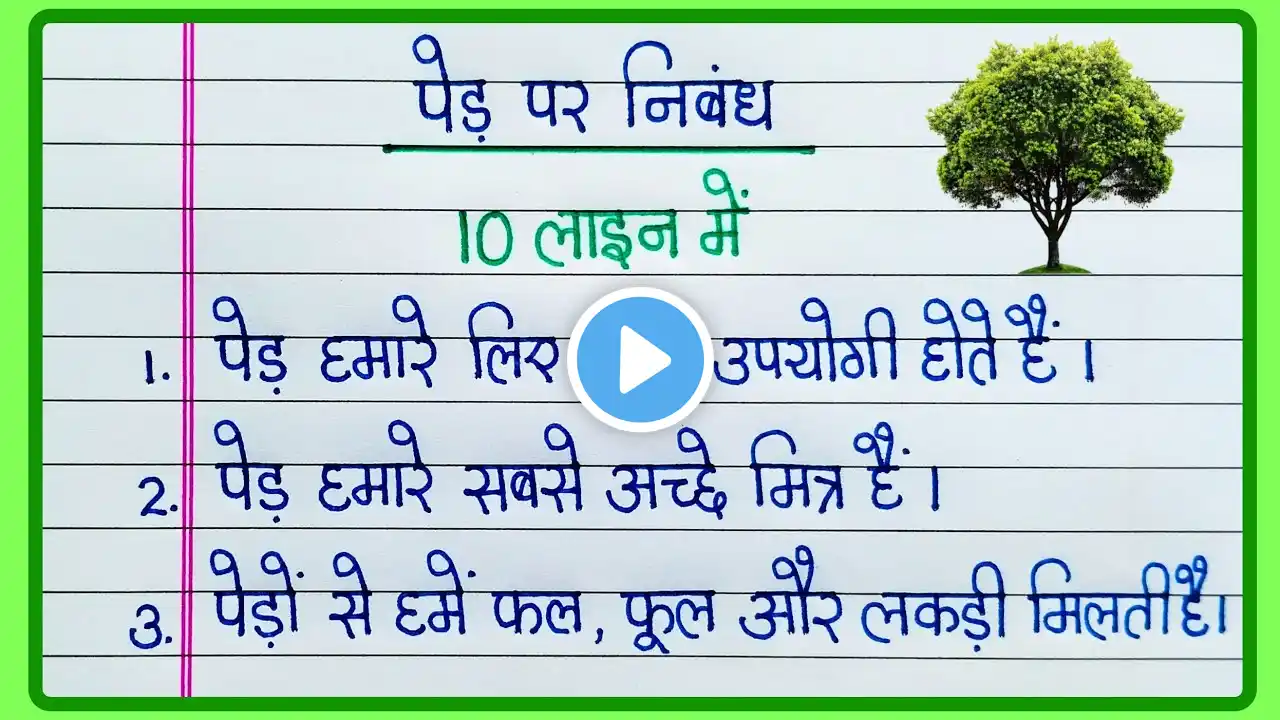 पेड़ पर निबंध
10 लाइन में
1. पेड़ हमारे लिए उपयोगी होते हैं।
2. पेड़ हमारे सबसे अच्छे मित्र हैं।
3. पेड़ों से हमें फल, फूल और लकड़ी मिलती है।